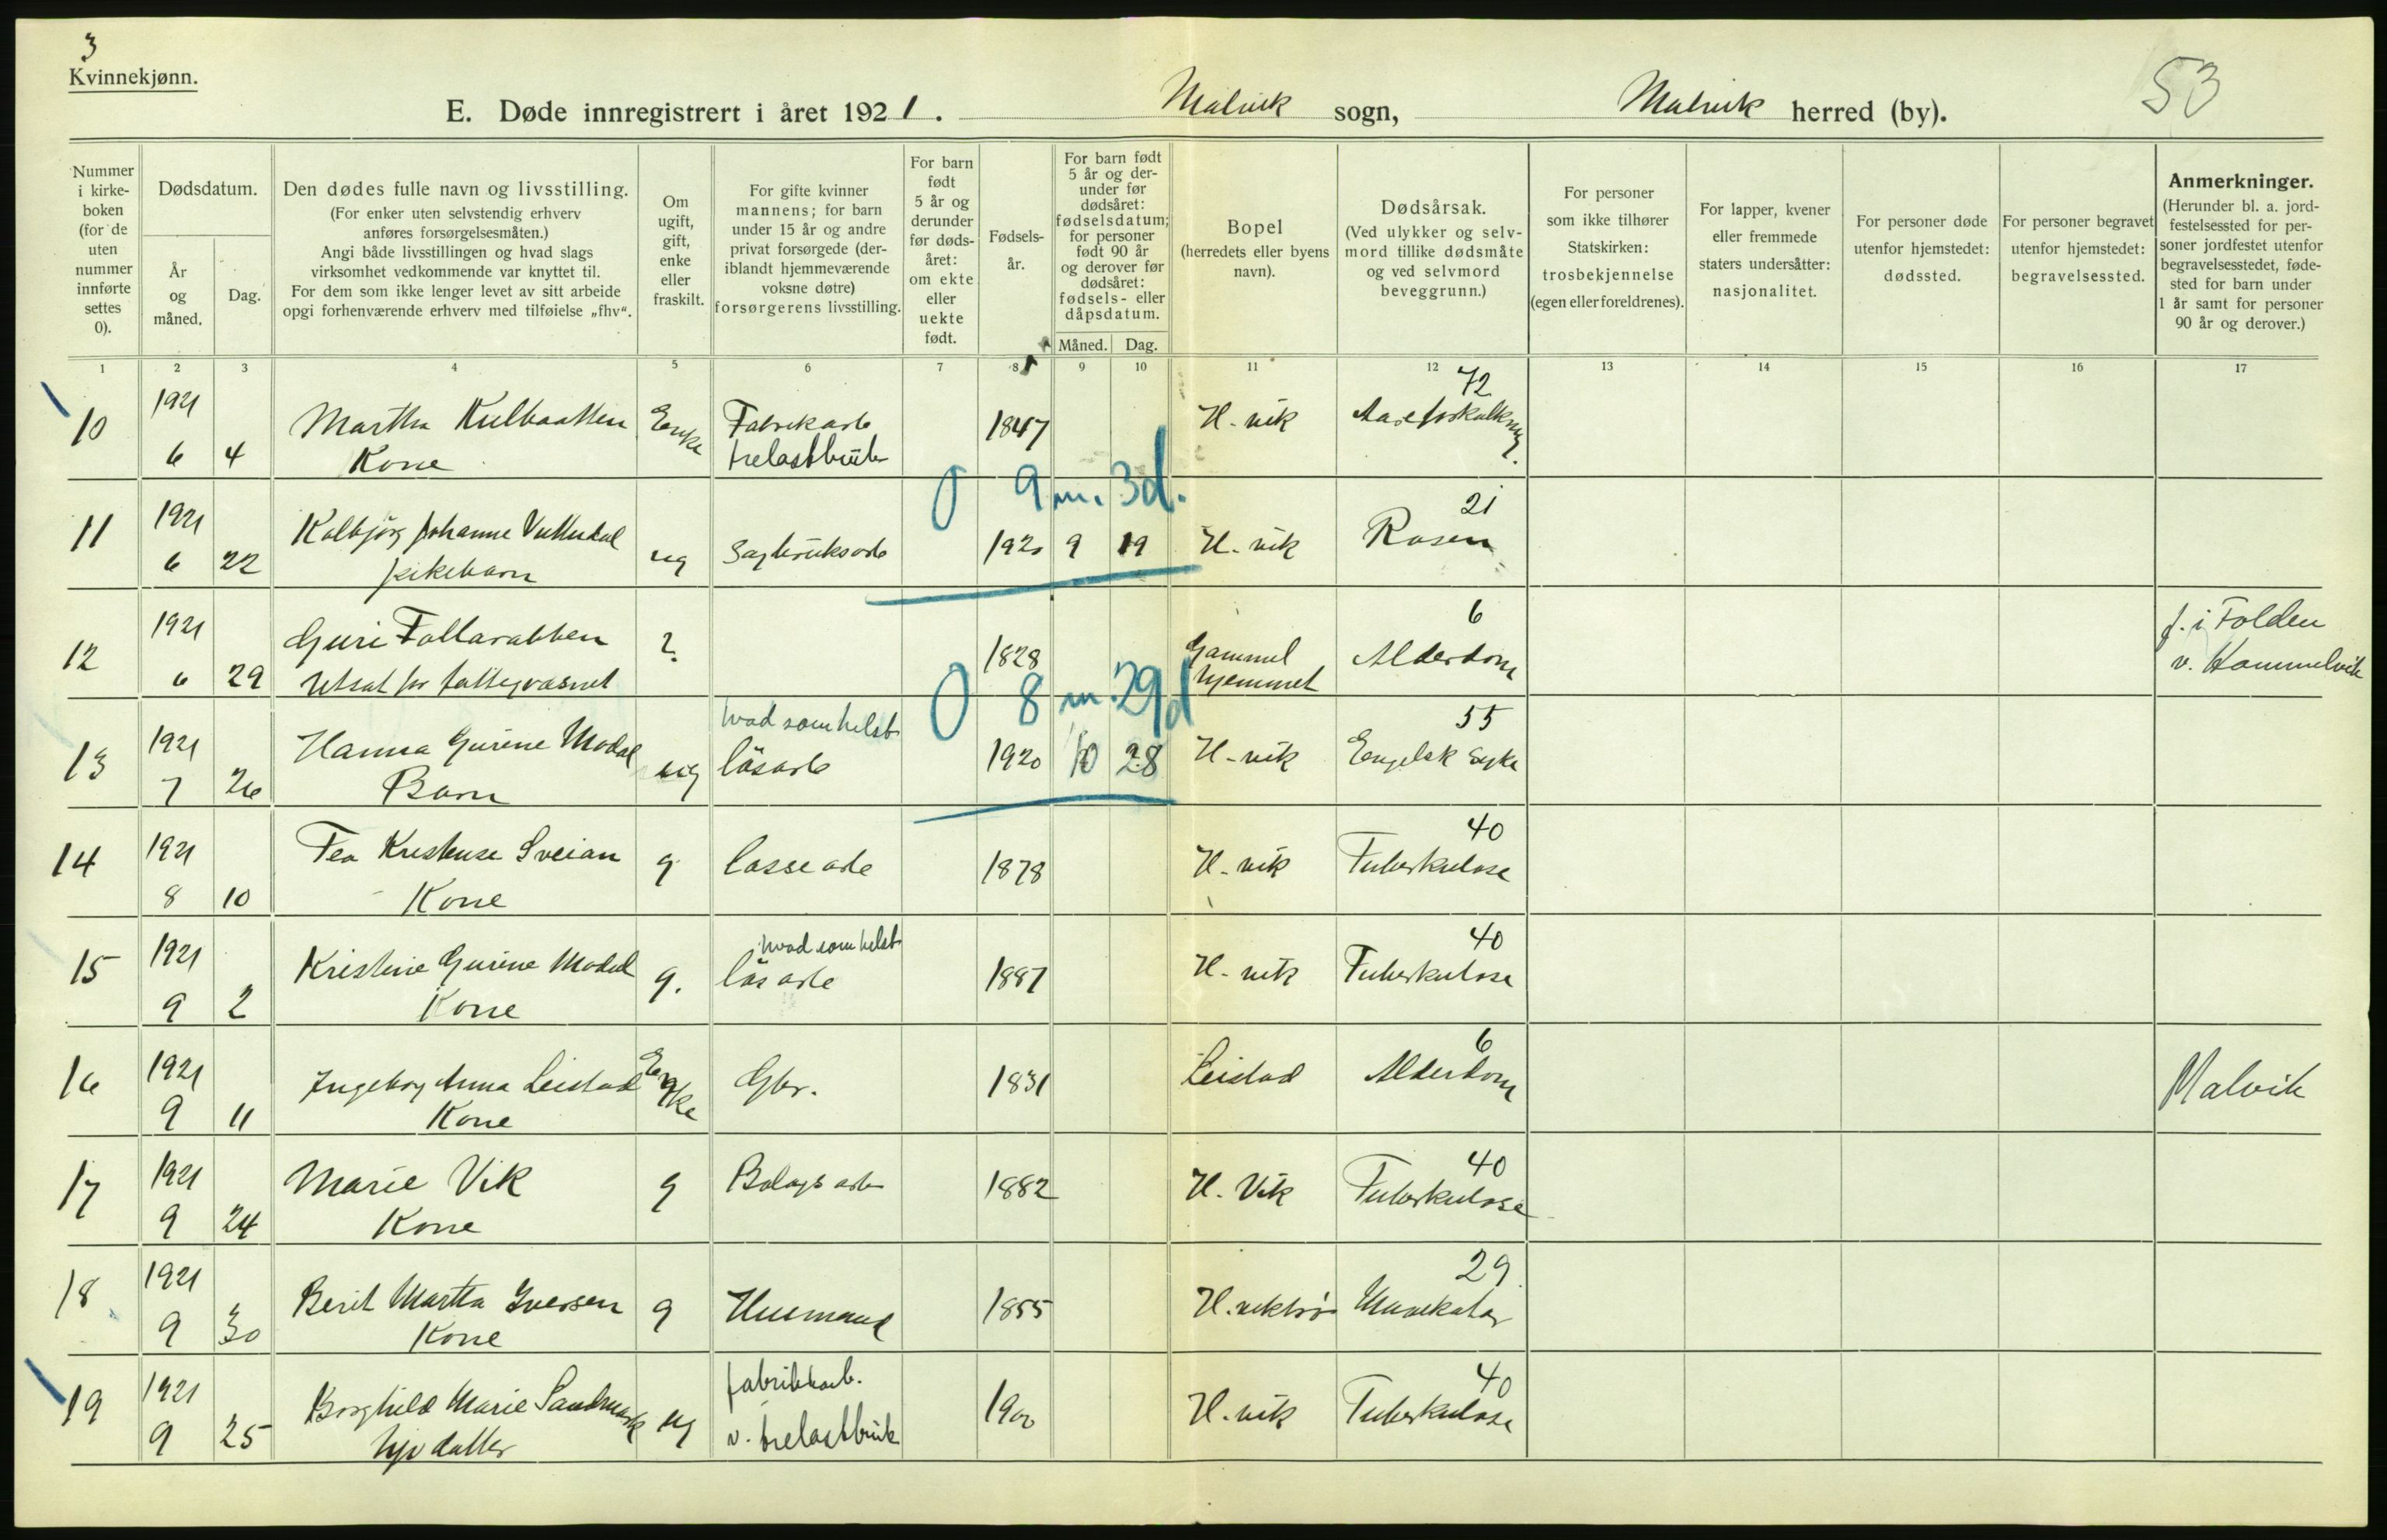 3
Kvinnekjønn.
53
E. Døde innregistrert i året 1921. Malvik sogn, Malvik herred (by).
Nummer i kirkeboken (for de uten nummer innførte settes 0).
Dødsdatum.
År og måned.
Dag.
Den dødes fulle navn og livsstilling.
(For enker uten selvstendig erhverv anføres forsørgelsesmåten.)
Angi både livsstillingen og hvad slags virksomhet vedkommende var knyttet til.
For dem som ikke lenger levet av sitt arbeide opgi forhenværende erhverv med tilføielse „fhv“.
Om ugift, gift, enke eller fraskilt.
For gifte kvinner mannens; for barn under 15 år og andre privat forsørgede (deriblandt hjemmeværende voksne døtre) forsørgerens livsstilling.
For barn født 5 år og derunder før dødsåret: om ekte eller uekte født.
Fødselsår.
For barn født 5 år og derunder før dødsåret: fødselsdatum; for personer født 90 år og derover før dødsåret: fødsels- eller dåpsdatum.
Måned. Dag.
Bopel (herredets eller byens navn).
Dødsårsak.
(Ved ulykker og selvmord tillike dødsmåte og ved selvmord beveggrunn.)
For personer som ikke tilhører Statskirken: trosbekjennelse (egen eller foreldrenes).
For lapper, kvener eller fremmede staters undersåtter: nasjonalitet.
For personer døde utenfor hjemstedet: dødssted.
For personer begravet utenfor hjemstedet: begravelsessted.
Anmerkninger.
(Herunder bl. a. jordfestelsessted for personer jordfestet utenfor begravelsesstedet, fødested for barn under 1 år samt for personer 90 år og derover.)
1 2 3 4 5 6 7 8 9 10 11 12 13 14 15 16 17
72
10 1921 Martha Enke Fabrikarb 1847 H. vik
6 4 Kone trelastbruk
0 9 m. 3d.
21
11 1921 Kolbjørg Johanne ug Sagbruksarb 1920 9 19 H. vik Rosen
6 22 pikebarn
6
12 1921 Guri ? 1828 Gammel Alderdom f. i Folden
6 29 Utsat for fattigvæsnet hjemmet v. Hommelvik
0 8 m. 29d
hvad som helst 55
13 1921 Hanna Gurine Modal ug løsarb 1920 10 28 H. vik Engelsk syke
7 26 Barn
40
14 1921 Fea Kristense Sveian g lossearb 1878 H. vik Tuberkulose
8 10 Kone
hvad som helst 40
15 1921 Kristine Gurine Modal g. løsarb 1887 H. vik Tuberkulose
9 2 Kone
6
16 1921 Ingeborg Anna Leistad Enke Gbr. 1831 Leistad Alderdom Malvik
9 11 Kone
40
17 1921 Marie Vik g arb 1882 H. Vik Tuberkulose
9 24 Kone
29
18 1921 Berit Martha Iversen g Husmand 1855 Mavekatar
9 30 Kone
fabrikkarb. 40
19 1921 Borghild Marie Sandmark ug 1900 H. vik Tuberkulose
9 25 hjv datter v. trelastbruk